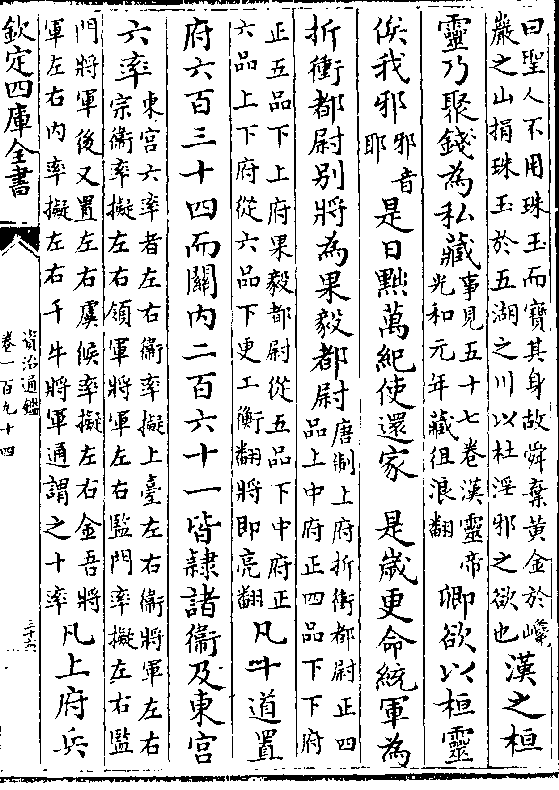 曰聖人不用珠玉而寶其身故舜棄黃金於巉
巖之山捐珠玉於五湖之川以杜淫邪之欲也
漢之桓
靈乃聚錢為私藏
事見五十七卷漢靈帝
光和元年藏徂浪翻
卿欲以桓靈
俟我邪
邪音
耶
是日黜萬紀使還家 是歲更命統軍為
折衝都尉别將為果毅都尉
唐制上府折衝都尉正四
品上中府正四品下下府
正五品下上府果毅都尉從五品下中府正
六品上下府從六品下更工衡翻將即亮翻
凡十道置
府六百三十四而關内二百六十一皆隸諸衞及東宫
六率
東宫六率者左右衞率擬上臺左右衞將軍左右
宗衞率擬左右領軍將軍左右監門率擬左右監
門將軍後又置左右虞候率擬左右金吾將
軍左右内率擬左右千牛將軍通謂之十率
凡上府兵
欽定四庫全書
資治通鑑
卷一百九十四